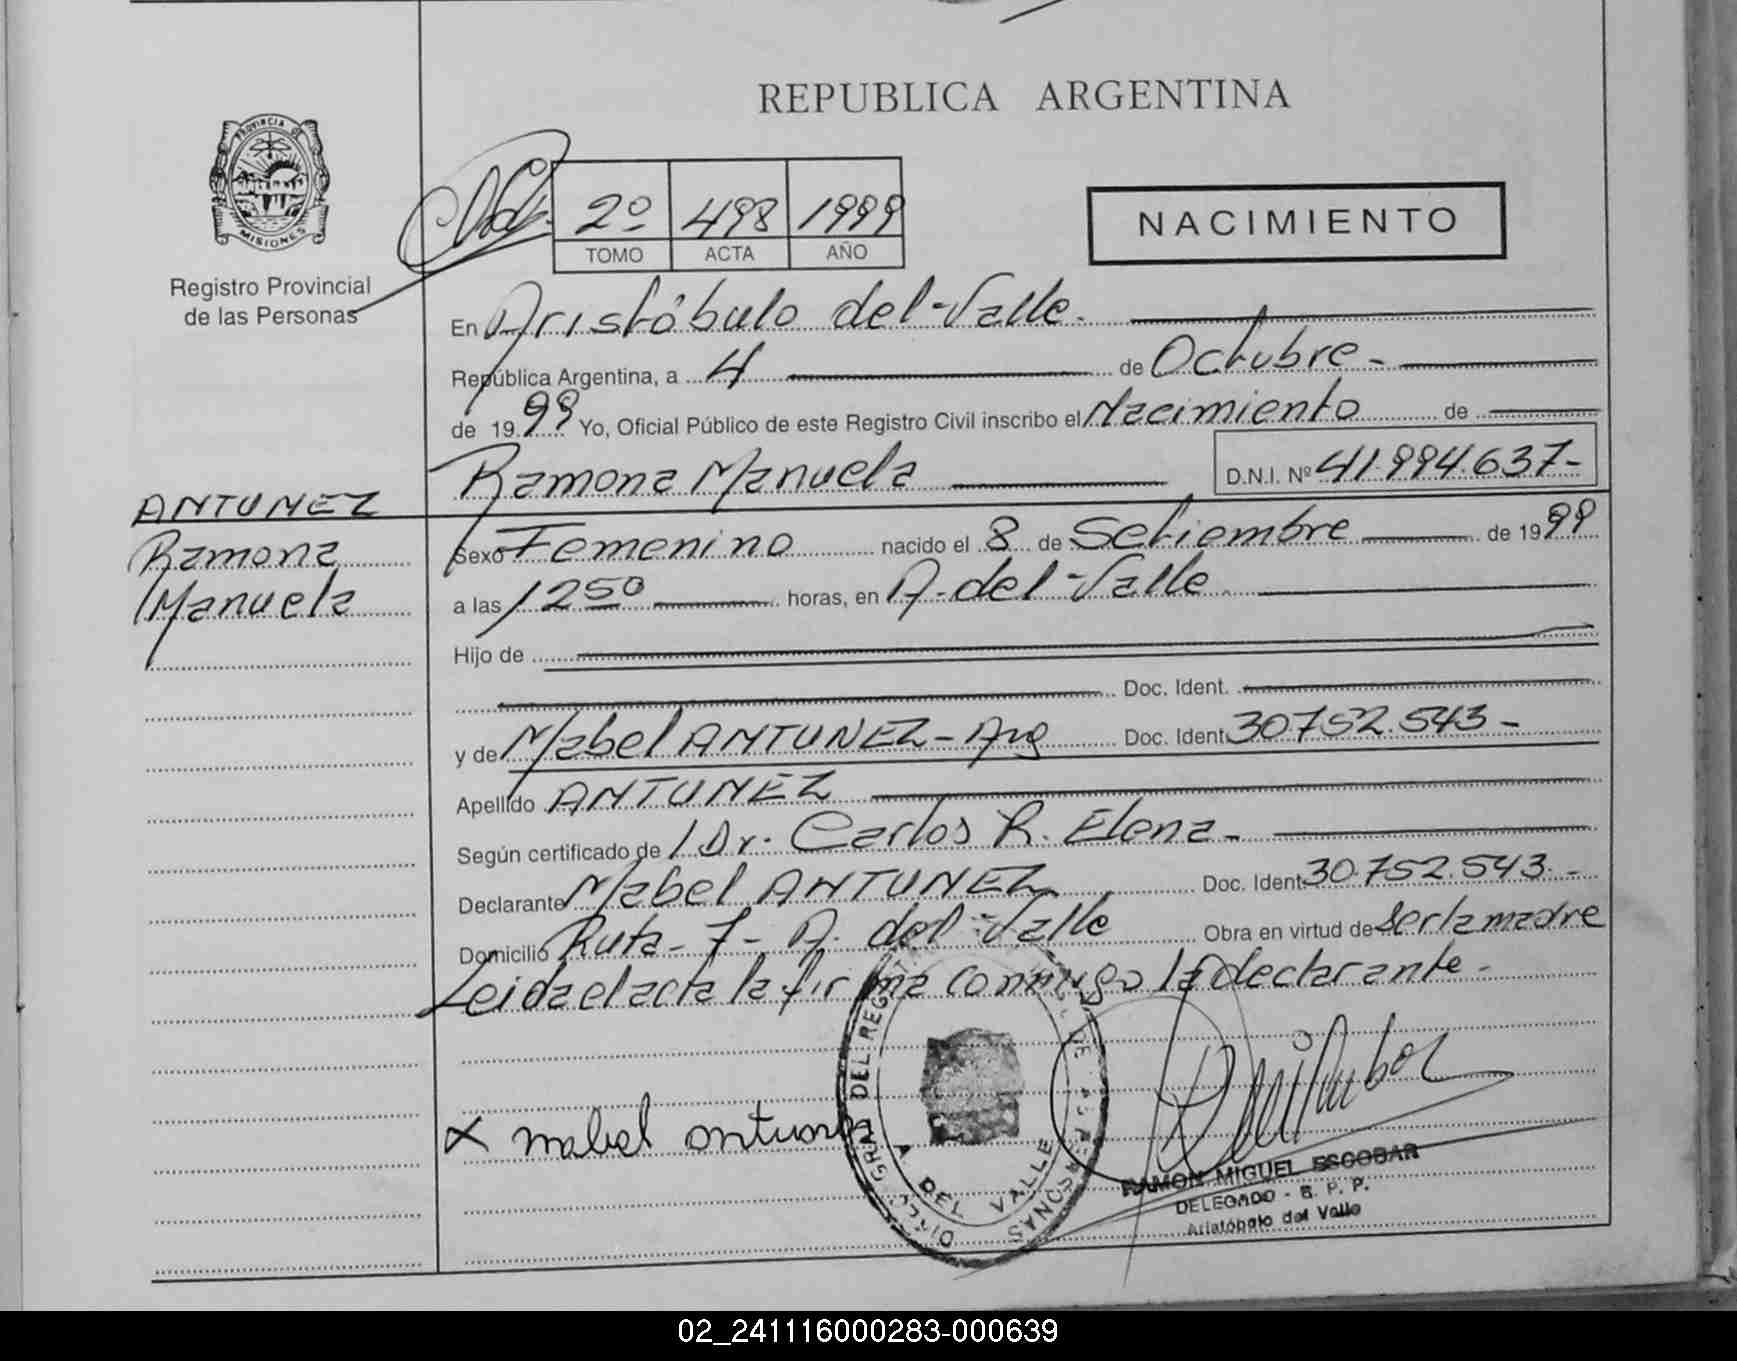 REPUBLICA ARGENTINA
PROVINCIA DE
MISIONES
Registro Provincial
de las Personas
2º 498 1999
TOMO ACTA AÑO
NACIMIENTO
En Aristóbulo del Valle.
República Argentina, a 4 de Octubre -
de 1999 Yo, Oficial Público de este Registro Civil inscribo el Nacimiento de
Ramona Manuela D.N.I. Nº 41.994.637-
ANTUNEZ
Ramona
Manuela
Sexo Femenino nacido el 8 de Setiembre de 1999
a las 1250 horas, en A. del Valle
Hijo de
Doc. Ident.
y de Mabel ANTUNEZ - Arg Doc. Ident. 30752.543-
Apellido ANTUNEZ
Según certificado de Dr. Carlos R. Elena -
Declarante Mabel ANTUNEZ Doc. Ident. 30.752.543.-
Domicilio Ruta - 7 - A. del Valle Obra en virtud de ser la madre
Leida el acta la firma conmigo la declarante -
X mabel antunez
A DEL VALLE
RAMON MIGUEL ESCOBAR
DELEGADO - R. P. P.
Aristóbulo del Valle
02_241116000283-000639